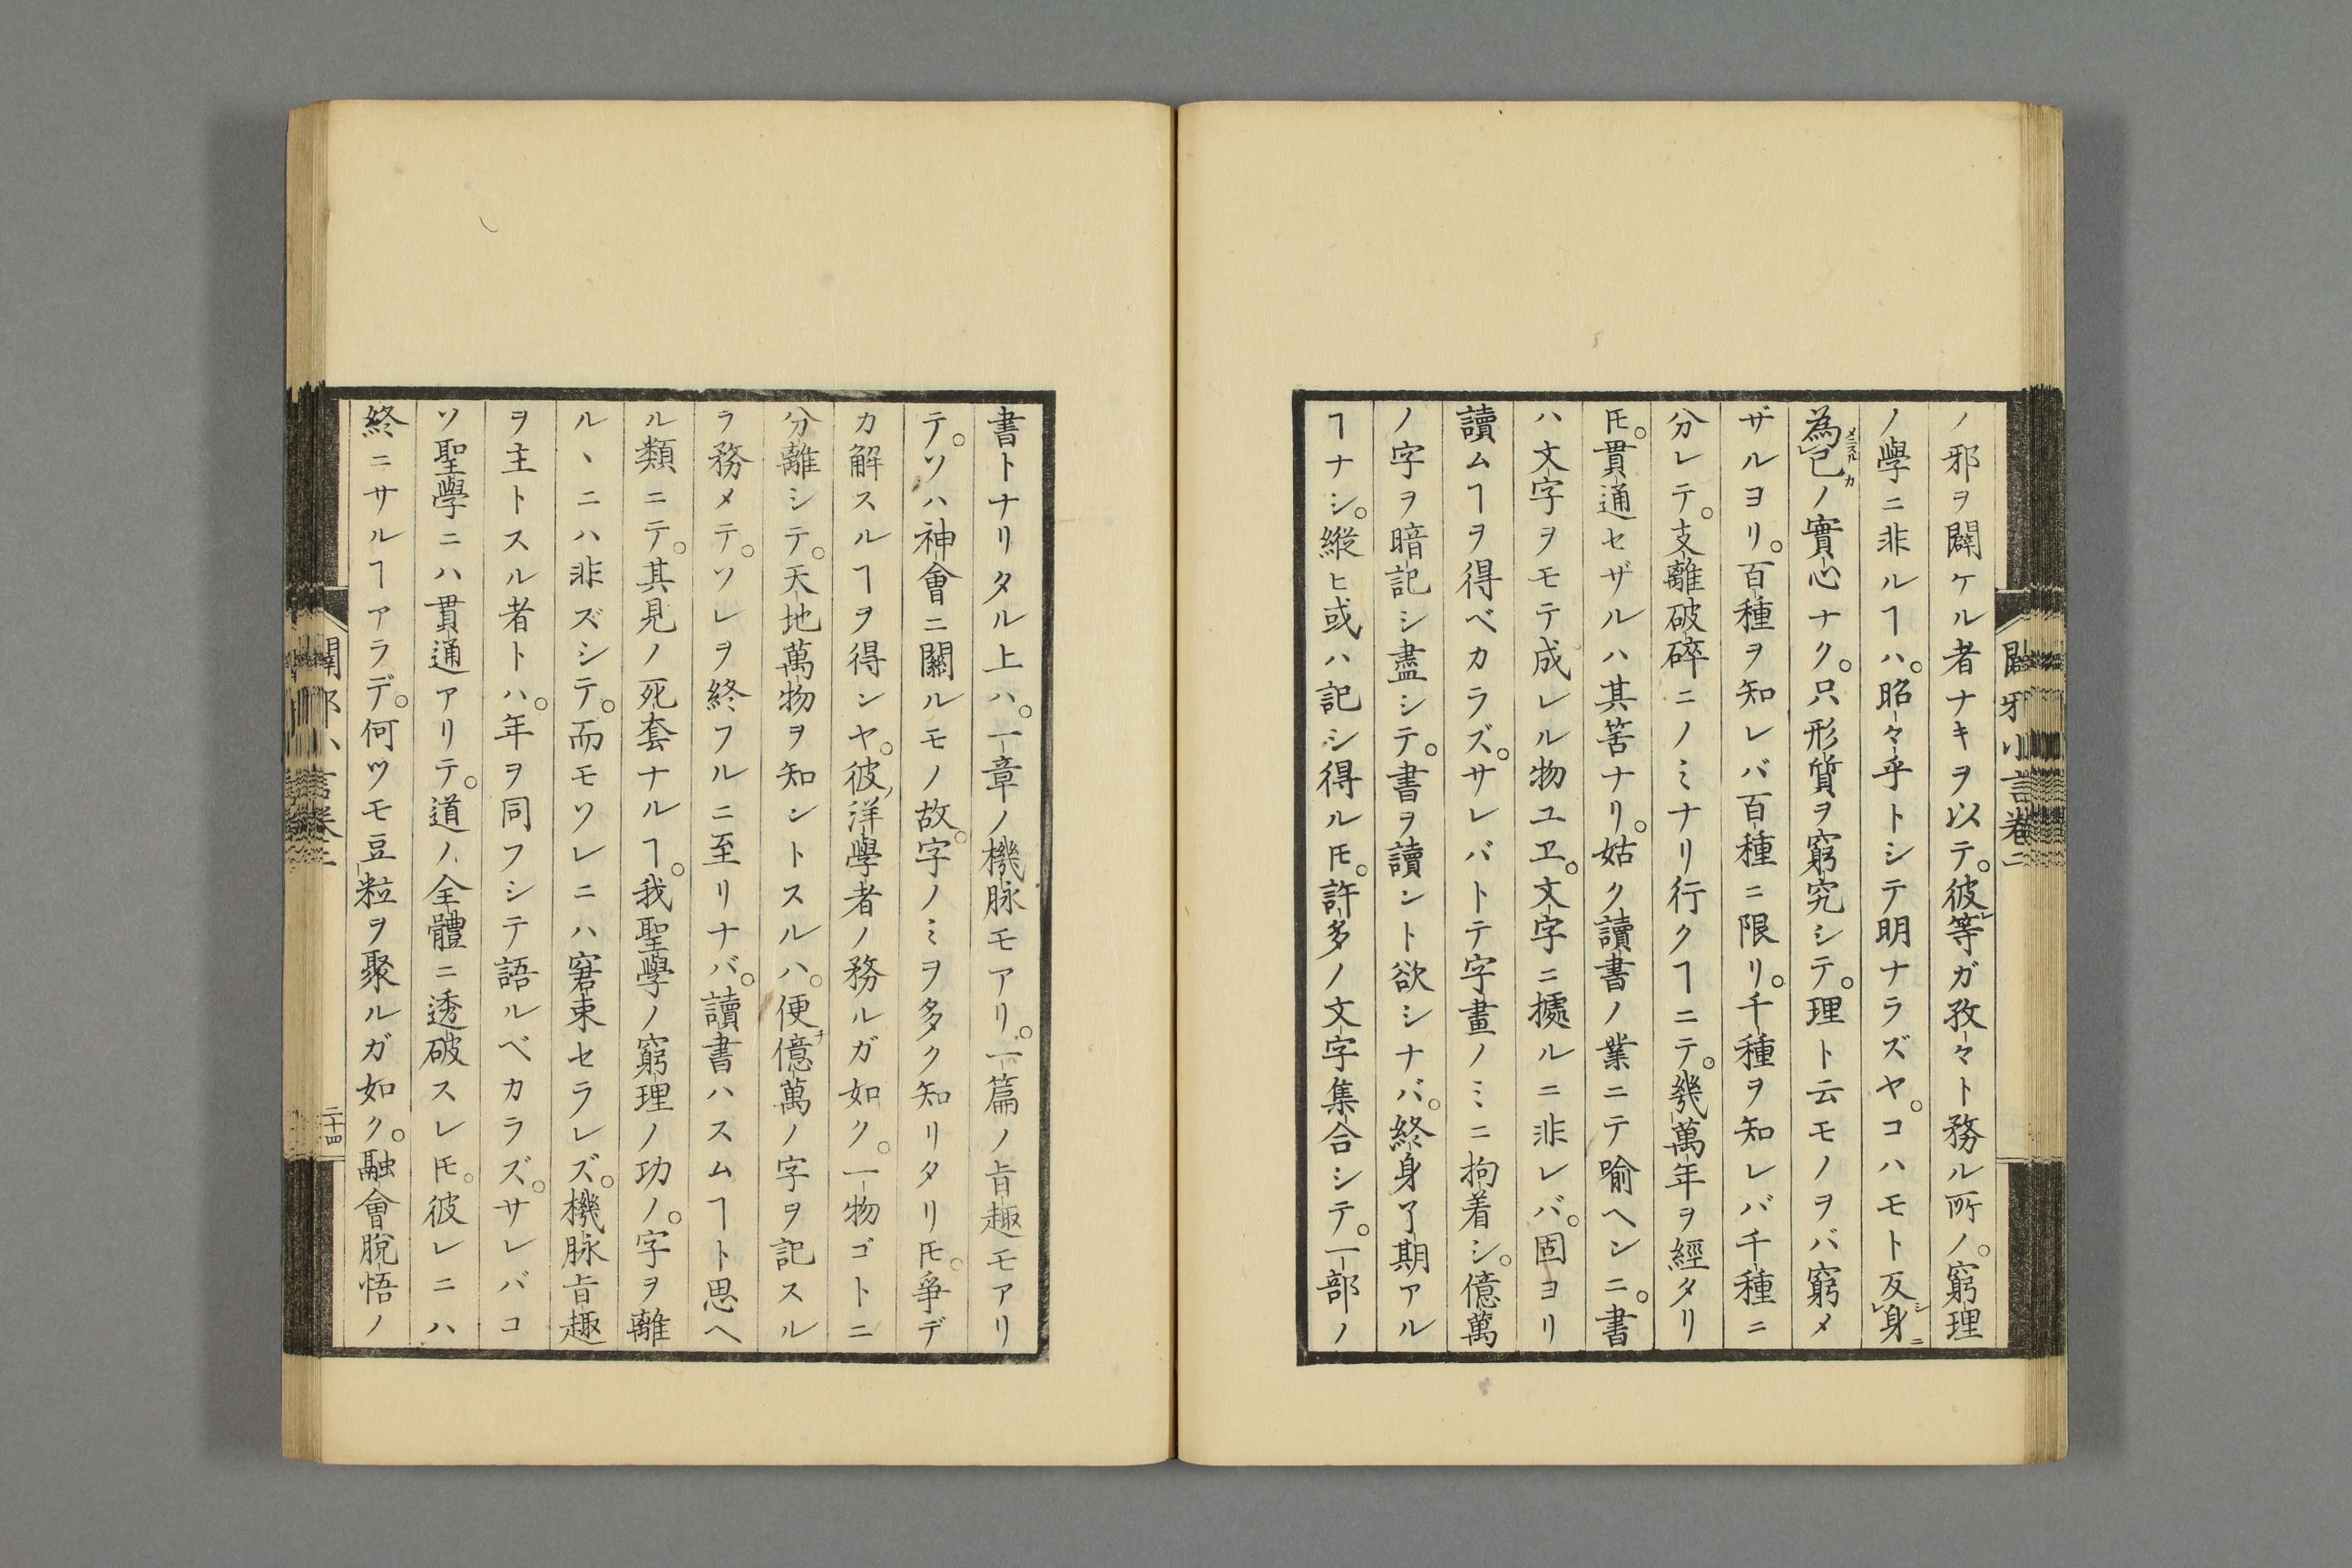 闢邪小言卷二
ノ邪ヲ闢ケル者ナキヲ以テ。彼レ等ガ孜々ト務ル所ノ。窮理
ノ學ニ非ルヿハ。昭々乎トシテ明ナラズヤ。コハモト反シレ身ニ
為メニスルレ己カノ實心ナク。只形質ヲ窮究シテ。理ト云モノヲバ窮メ
ザルヨリ。百種ヲ知レバ百種ニ限リ。千種ヲ知レバ千種ニ
分レテ。支離破碎ニノミナリ行クヿニテ。幾萬年ヲ經タリ
𪜈。貫通セザルハ其筈ナリ。姑ク讀書ノ業ニテ喻ヘンニ。書
ハ文字ヲモテ成レル物ユヱ。文字ニ據ルニ非レバ。固ヨリ
讀ムヿヲ得ベカラズ。サレバトテ字畫ノミニ拘着シ。億萬
ノ字ヲ暗記シ盡シテ。書ヲ讀ント欲シナバ。終身了期アル
ヿナシ。縱ヒ或ハ記シ得ル𪜈。許多ノ文字集合シテ。一部ノ
書トナリタル上ハ。一章ノ機脉モアリ。一篇ノ旨趣モアリ
テ。ソハ神會ニ關ルモノ故。字ノミヲ多ク知リタリ𪜈。爭デ
カ解スルヿヲ得ンヤ。彼ノ洋學者ノ務ルガ如ク。一物ゴトニ
分離シテ。天地萬物ヲ知ントスルハ。便チ億萬ノ字ヲ記スル
ヲ務メテ。ソレヲ終フルニ至リナバ。讀書ハスムヿト思ヘ
ル類ニテ。其見ノ死套ナルヿ。我聖學ノ窮理ノ功ノ。字ヲ離
ルヽニハ非ズシテ。而モソレニハ窘束セラレズ。機脉旨趣
ヲ主トスル者トハ。年ヲ同フシテ語ルベカラズ。サレバコ
ソ聖學ニハ貫通アリテ。道ノ全體ニ透破スレ𪜈。彼レニハ
終ニサルヿアラデ。何ツモ豆粒ヲ聚ルガ如ク。融會脫悟ノ
二十四